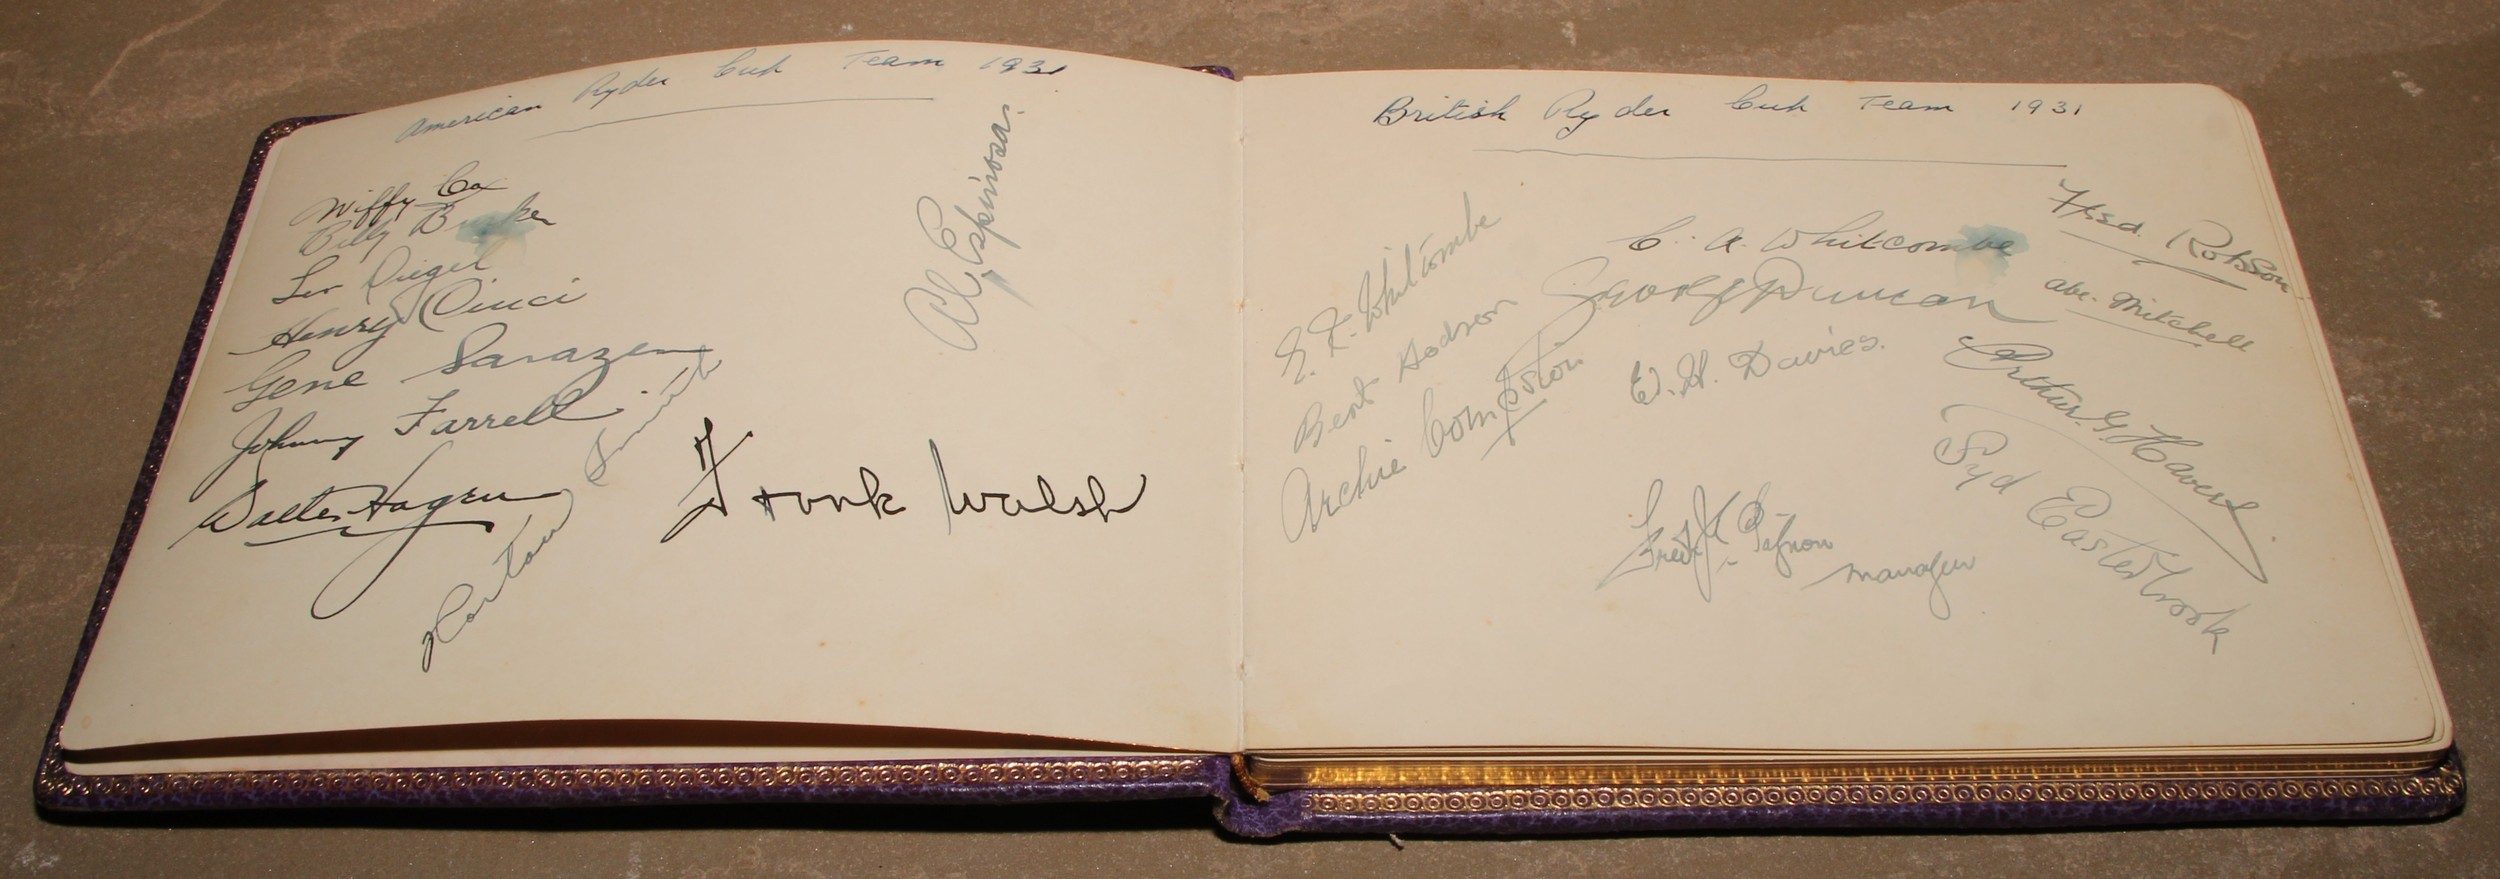 American Ryder Cup Team 1931
Wiffy Cox
Billy Burke
Leo Diegel
Henry Ciuci
Gene Sarazen
Johnny Farrell
Walter Hagen
Horton Smith
Al Espinosa
Frank Walsh
British Ryder Cup Team 1931
E. R. Whitcombe
Bert Hodson
Archie Compston
C. A. Whitcombe
George Duncan
W. H. Davies.
Fred Robson
Abe. Mitchell
Arthur. G. Havers
Syd Easterbrook
manager